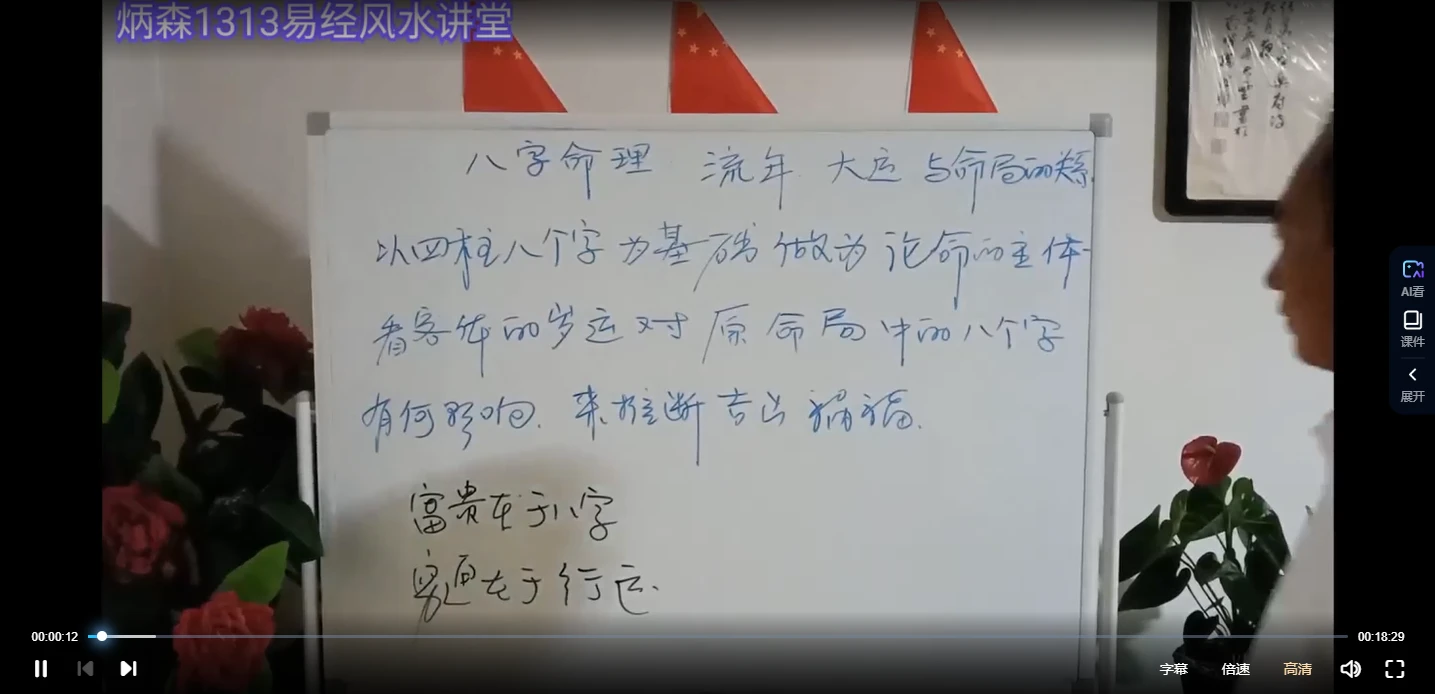 炳森1313易经风水讲堂
八字命理 流年 大运 与命局的关系
以四柱八个字为基础 做为 论命的主体
看客体的岁运对原命局中的八个字
有何影响. 来推断吉凶祸福.
富贵在于八字
穷通在于行运.
AI看
课件
展开
00:00:12
00:18:29
字幕
倍速
高清